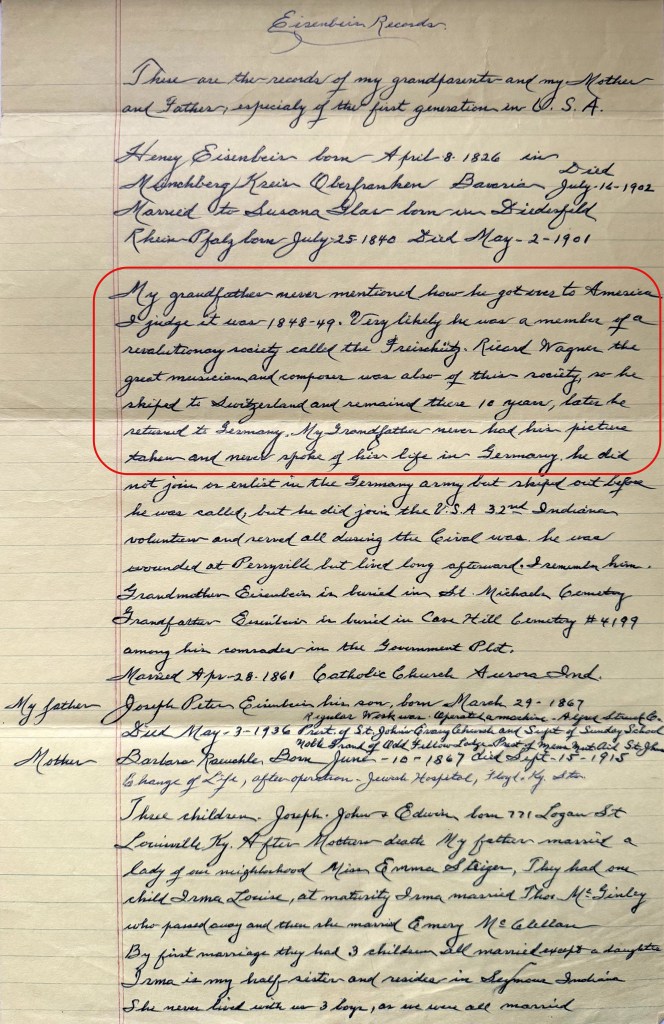 Eisenbeis Records.
These are the records of my grandparents and my Mother
and Father, especialy of the first generation in U. S. A.
Henry Eisenbeis born April 8. 1826 in
Died
Münchberg Kreis Oberfranken Bavaria July-16-1902
Married to Susana Glas born in Diedesfeld
Rhein Pfalz born July-25 1840 Died May-2-1901
My grandfather never mentioned how he got over to America
I judge it was 1848-49. Very likely he was a member of a
revolutionary society called the Freischütz. Ricard Wagner the
great musician and composer was also of this society, so he
skiped to Switzerland and remained there 10 years, later he
returned to Germany. My Grandfather never had his picture
taken and never spoke of his life in Germany. he did
not join or enlist in the Germany army but skiped out before
he was called, but he did join the U.S.A 32nd Indiana
volunteer and served all during the Cival was. he was
wounded at Perryville but lived long afterward. I remember him.
Grandmother Eisenbeis is buried in St. Michaels Cemetery
Grandfarter Eisenbeis is buried in Cave Hill Cemetery #4199
among his comrades in the Government Plot.
Married Apr-28-1861 Catholic Church Aurora Ind.
My father Joseph Peter Eisenbeis his son, born March 29-1867
Regular Work was Operator machine
Died May-3-1936 Prest. of St. John's Evang Church and Supt of Sunday School
Noble Grand of Odd Fellow Lodge Prest of Mens Mut Aid St. Johns
Mother Barbara Born June-10-1867 died Sept-15-1915
Change of Life, after operation Jewish Hospital, Floyd-Ky Sts.
Three children. Joseph. John & Edwin born 771 Logan St
Louisville Ky. After Mothers death My father married a
lady of our neighborhood Miss Emma Steiger, They had one
child Irma Louise, at maturity Irma married Thos. McGinley
who passed away and then she married Emery McClellan
By first marriage they had 3 children all married except a daughter
Irma is my half sister and resides in Seymour Indiana
She never lived with us 3 boys, as we were all married